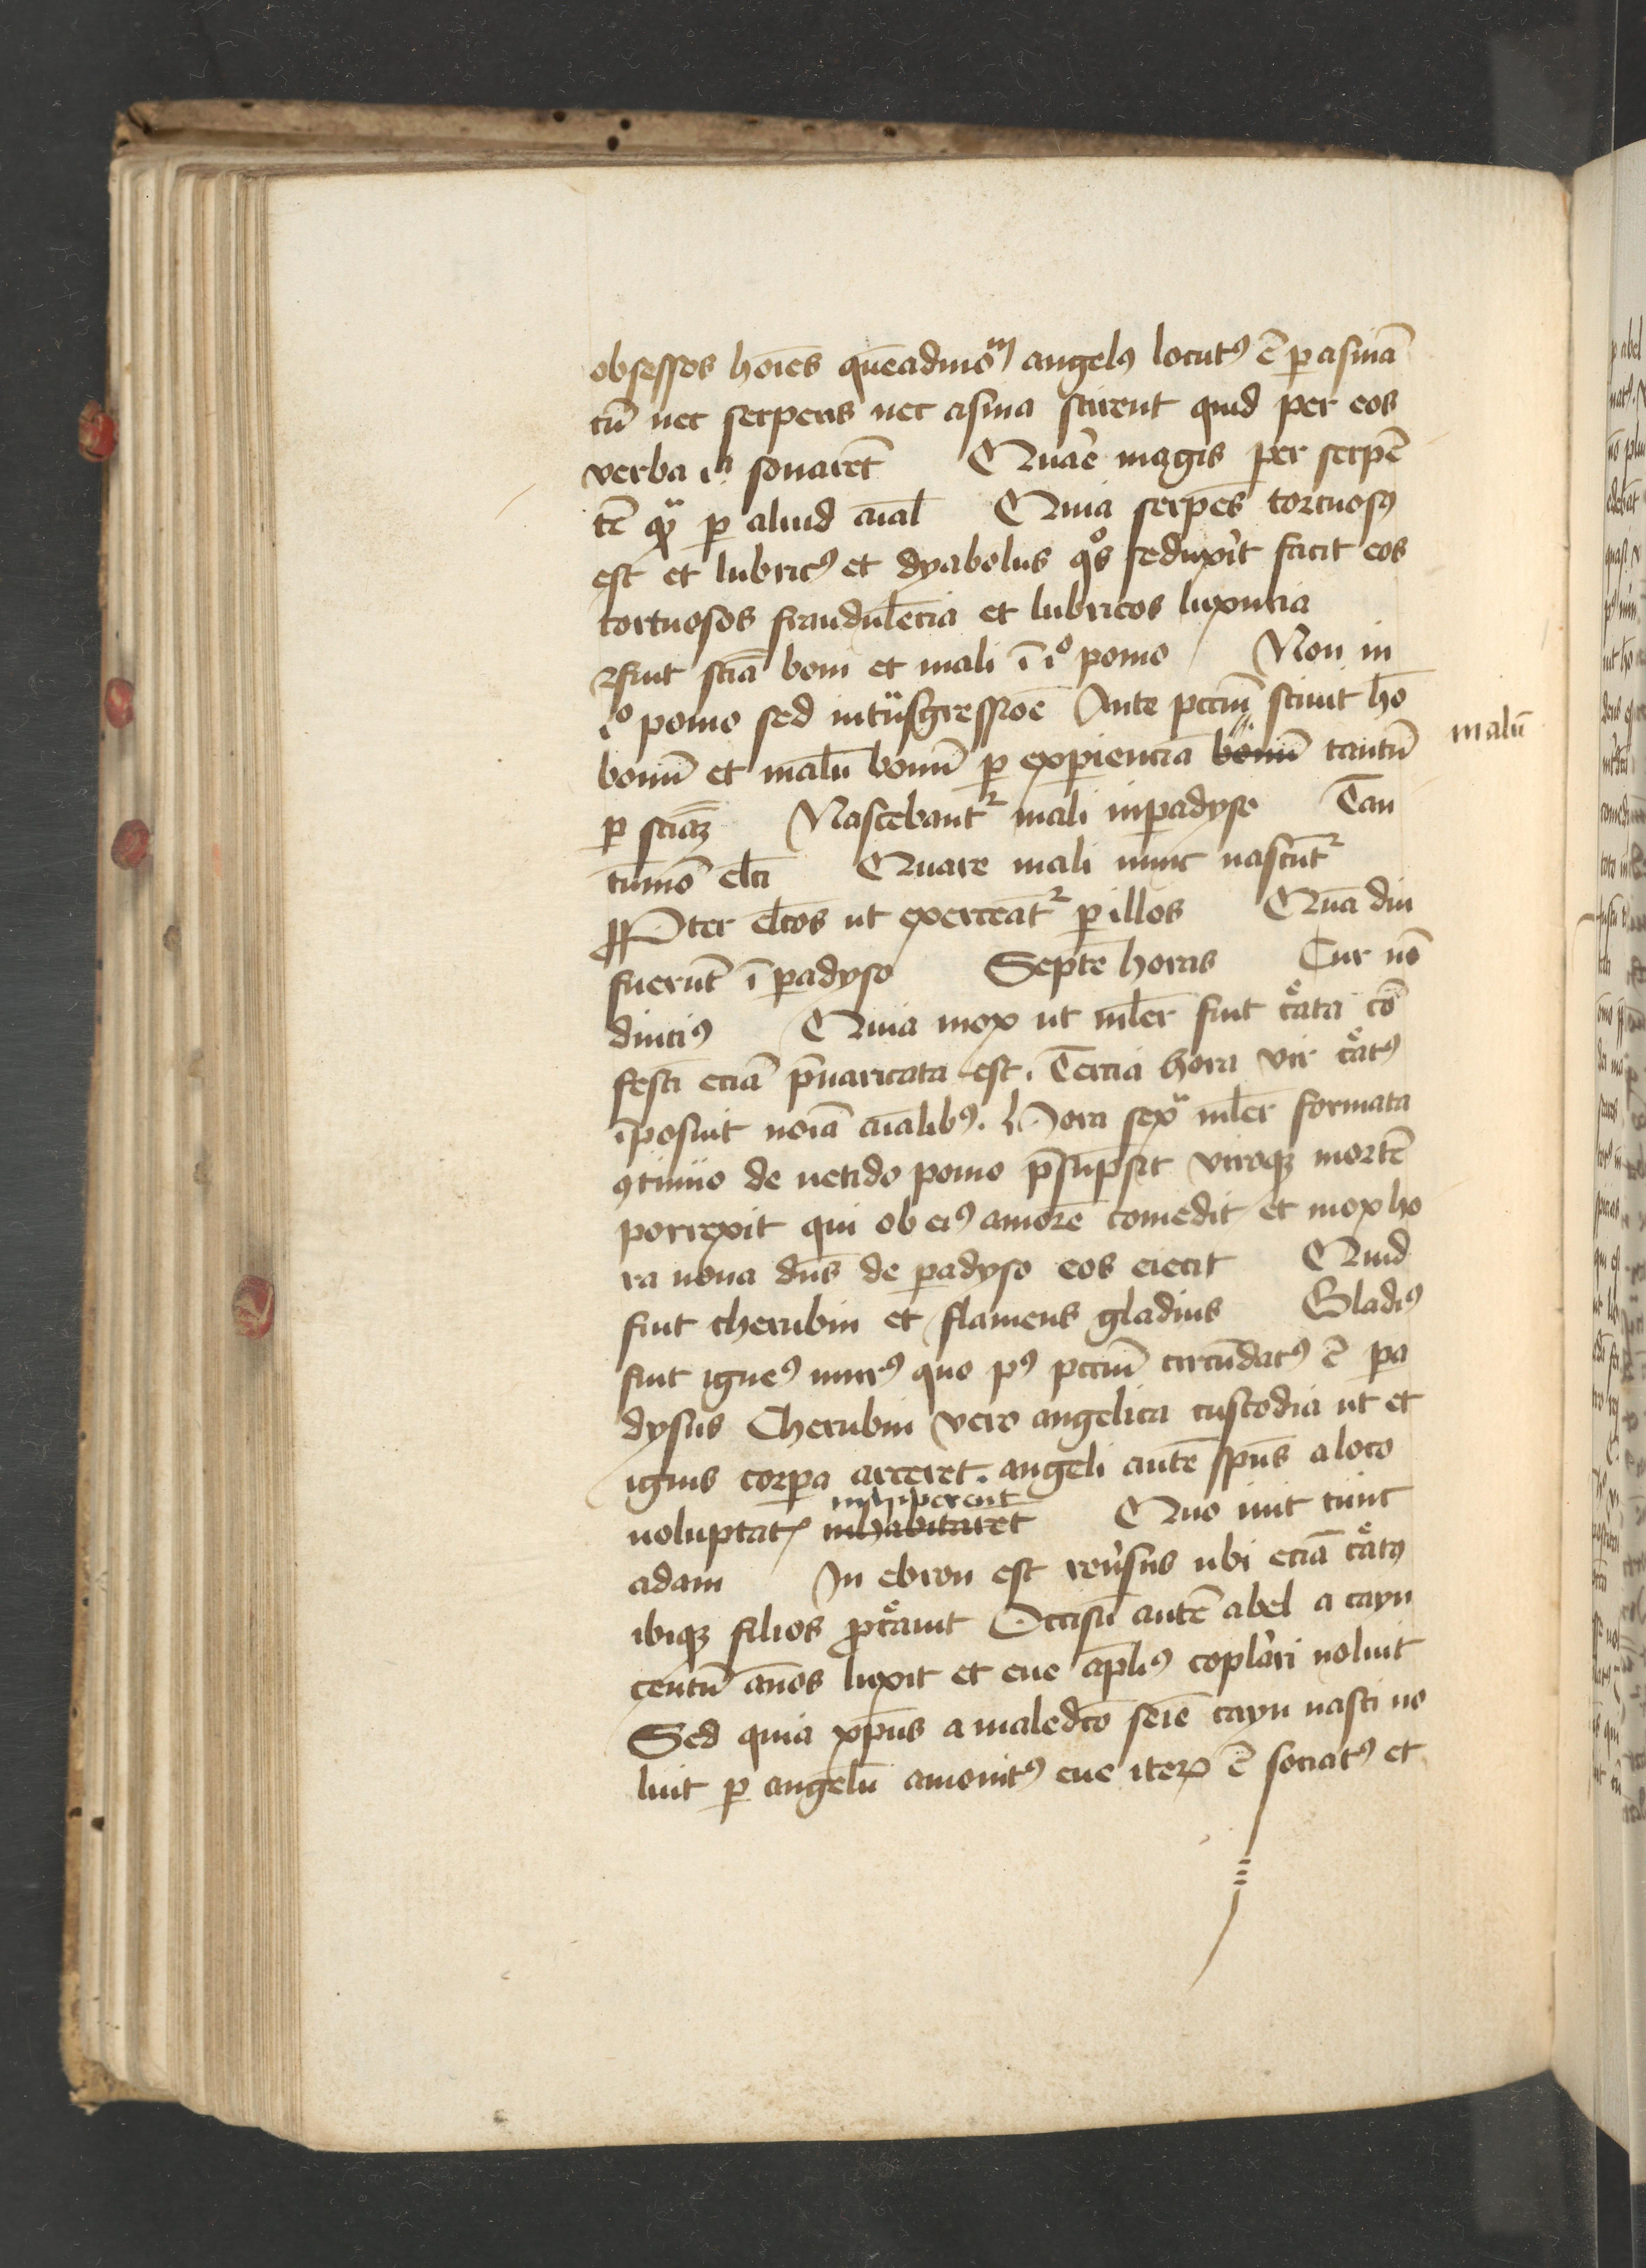 obsessos hoı̄es quēadmoᵐ angelꝰ locutꝰ ē ꝑ asinā
cū nec serpens nec asina scirent quid per eos
verba iᵃ sonarēt Quar̄e magis per serpē
tē qͣ ꝑ aliud aı̄al Quia serpēs tortuosꝰ
est et lubricꝰ et dyabolus qͦs seduxit facit eos
tortuosos fraudulēcia et lubricos luxuria
fuit scīa boni et mali ī iͦ pomo Non in
iͦ pomo sed in tͣnsgressiōe Ante pctm̄ sciuit hō
bonū et malū bonū ꝑ experienciā bonū tantū malū
ꝑ sciāꝫ Nascebantᷣ mali in padyso Tan
tūmō elc̄i Quare mali nunc nascūtᷣ
Propter elc̄os ut exerceātᷣ ꝑ illos Quādiu
fuerūt ī padyso Septē horas Cur nō
diuciꝰ Quia mox ut ml̄er fuit cͤata cō
festī eciā p̄uaricata est. Tercia hora vir cͤatꝰ
īposuit noı̄a aı̄alibꝰ. Hora sexͣ ml̄er formata
ꝯtinuo de uetido pomo p̄supsit viroqꝫ mortē
porrexit qui ob eiꝰ amorē comedit et mox ho
ra nona dn̄s de padyso eos eiecit Quid
fuit cherubin et flameus gladius Gladiꝰ
fuit igneꝰ murꝰ quo pꝰ pctm̄ circūdatꝰ ē pa
dysus Cherubin vero angelica custodia ut et
ignis corpa arceret. angeli autē spūs a loco
uoluptatꝭ inhabitaret Quo iuit tunc
adam In ebron est reu̓sus ubi eciā cͤatꝰ
ibiqꝫ filios ꝓcͤauit Occisū autē abel a cayn
centū ānos luxit et eue ap̄liꝰ copl̄ari noluit
Sed quia xp̄us a maledc̄o seı̄e cayn nasci no
luit ꝑ angelū amonitꝰ eue iteꝝ ē sociatꝰ et